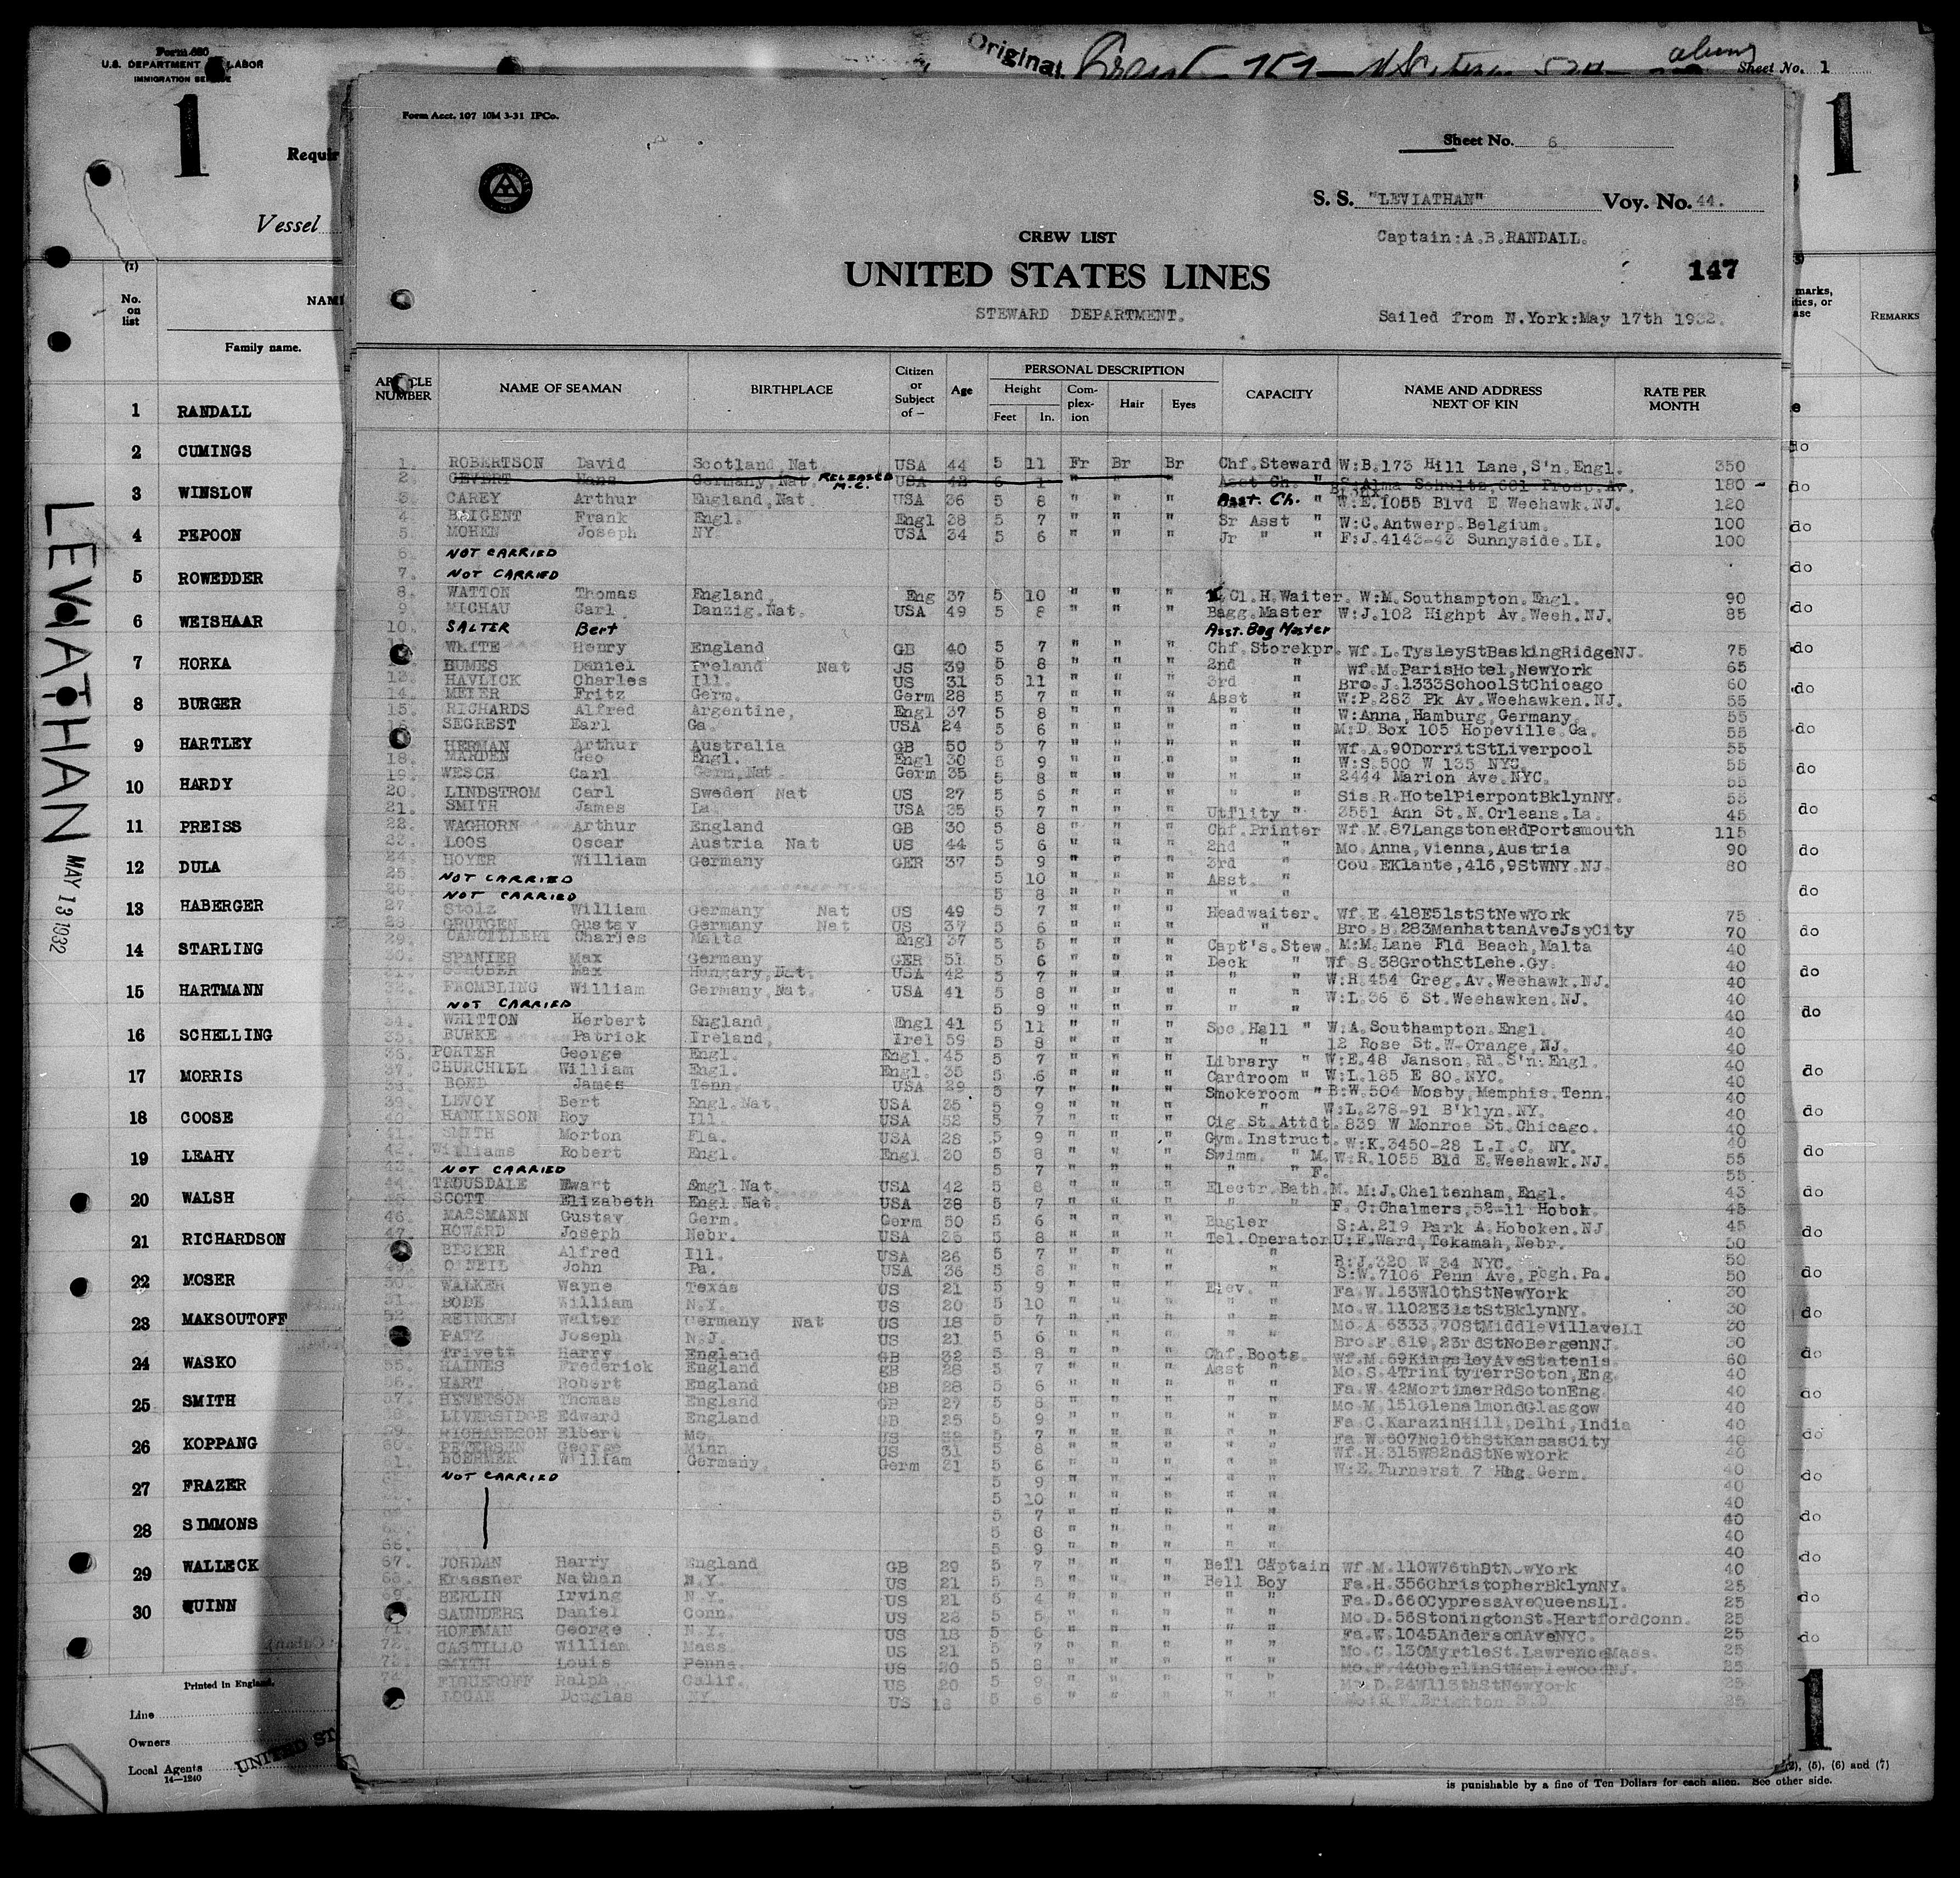 Form 680
U.S. DEPARTMENT LABOR
IMMIGRATION SERVICE
Original
Sheet No. 1
1
1
Requir
Vessel
Form Acct. 107 10M 3-31 IPCo.
Sheet No. 6
S. S. "LEVIATHAN" Voy. No. 44.
CREW LIST
Captain: A.B.RANDALL.
UNITED STATES LINES
147
STEWARD DEPARTMENT.
Sailed from N.York:May 17th 1932.
(1)
No. on list
NAME
Family name.
REMARKS
ARTICLE NUMBER NAME OF SEAMAN BIRTHPLACE Citizen or Subject of — Age PERSONAL DESCRIPTION Height Feet In. Complexion Hair Eyes CAPACITY NAME AND ADDRESS NEXT OF KIN RATE PER MONTH
1 RANDALL
2 CUMINGS
3 WINSLOW
4 PEPOON
5 ROWEDDER
6 WEISHAAR
7 HORKA
8 BURGER
9 HARTLEY
10 HARDY
11 PREISS
12 DULA
13 HABERGER
14 STARLING
15 HARTMANN
16 SCHELLING
17 MORRIS
18 COOSE
19 LEAHY
20 WALSH
21 RICHARDSON
22 MOSER
23 MAKSOUTOFF
24 WASKO
25 SMITH
26 KOPPANG
27 FRAZER
28 SIMMONS
29 WALLECK
30 QUINN
LEVIATHAN MAY 13 1932
1. ROBERTSON David Scotland,Nat USA 44 5 11 Fr Br Br Chf.Steward W:B.173 Hill Lane,S'n.Engl. 350
2 GEVERT Hans Germany,Nat. RELEASED M.C. USA 42 6 1 " " " Asst Ch. " S:Alma Schultz,601 Prosp.Av. 180
3. CAREY Arthur England,Nat USA 36 5 8 " " " Asst. Ch. " W:E.1055 Blvd E Weehawk.NJ. 120
4. BAIGENT Frank Engl. Engl 38 5 7 " " " Sr Asst " W:C.Antwerp.Belgium. 100
5. MOHEN Joseph NY. USA 34 5 6 " " " Jr " " F:J.4143-43 Sunnyside.LI. 100
6. NOT CARRIED
7. NOT CARRIED
8. WATTON Thomas England, Eng 37 5 10 " " " Cl.H.Waiter. W:M.Southampton.Engl. 90
9. MICHAU Carl Danzig.Nat. USA 49 5 8 " " " Bagg.Master W:J.102 Highpt Av.Weeh.NJ. 85
10. SALTER Bert Asst. Bag Master
WHITE Henry England GB 40 5 7 " " " Chf.Storekpr. Wf.L.TysleyStBaskingRidgeNJ. 75
HUMES Daniel Ireland Nat US 39 5 8 " " " 2nd " Wf.M.ParisHotel,NewYork 65
13. HAVLICK Charles Ill. US 31 5 11 " " " 3rd " Bro.J.1333SchoolStChicago 60
14. MEIER Fritz Germ. Germ 28 5 7 " " " Asst " W:P.283 Pk Av.Weehawken.NJ. 55
15. RICHARDS Alfred Argentine, Engl 37 5 8 " " " " " W:Anna,Hamburg,Germany 55
16. SEGREST Earl Ga. USA 24 5 6 " " " " " M:D.Box 105 Hopeville.Ga. 55
HERMAN Arthur Australia GB 50 5 7 " " " " " Wf.A.90DorritStLiverpool 55
18. MARDEN Geo Engl. Engl 30 5 9 " " " " " W:S.500 W 135 NYC. 55
19. WESCH Carl Germ,Nat. Germ 35 5 8 " " " " " 2444 Marion Ave.NYC. 55
20. LINDSTROM Carl Sweden Nat US 27 5 6 " " " " " Sis.R.HotelPierpontBklynNY. 55
21. SMITH James La USA 35 5 7 " " " Utility " 2551 Ann St.N.Orleans.La. 45
22. WAGHORN Arthur England GB 30 5 8 " " " Chf.Printer Wf.M.87LangstoneRdPortsmouth 115
23. LOOS Oscar Austria Nat US 44 5 6 " " " 2nd " Mo.Anna,Vienna,Austria 90
24. HOYER William Germany GER 37 5 9 " " " 3rd " Cou.EKlante,416,9StWNY.NJ. 80
25. NOT CARRIED 5 10 " " " Asst. "
26. NOT CARRIED 5 8 " " " " "
27. Stolz William Germany Nat US 49 5 7 " " " Headwaiter. Wf.E.418E51stStNewYork 75
28 GRUTGEN Gustav Germany Nat US 37 5 6 " " " " Bro.B.283ManhattanAveJsyCity 70
29. CANCELLERI Charles Malta Engl 37 5 5 " " " Capt's.Stew. M:M.Lane Fld Beach,Malta 40
30. SPANIER Max Germany GER 51 5 6 " " " Deck " Wf S.38GrothStLehe.Gy. 40
31. SCHOBER Max Hungary,Nat. USA 42 5 7 " " " " " W:H.454 Greg.Av.Weehawk.NJ. 40
32. FROMBLING William Germany,Nat. USA 41 5 8 " " " " " W:L.36 6 St.Weehawken.NJ. 40
NOT CARRIED 5 9 " " " " " 40
34. WHITTON Herbert England, Engl 41 5 11 " " " Soc.Hall " W:A.Southampton.Engl. 40
35. BURKE Patrick Ireland, Irel 59 5 8 " " " " 12 Rose St.W-Orange,NJ. 40
36. PORTER George Engl. Engl. 45 5 7 " " " Library " W:E.48 Janson.Rd.S'n.Engl. 40
37. CHURCHILL William Engl. Engl. 35 5 6 " " " Cardroom " W:L.185 E 80.NYC. 40
38. BOND James Tenn. USA 29 5 7 " " " Smokeroom " B:W.504 Mosby,Memphis.Tenn. 40
39. LEVOY Bert Engl.Nat. USA 35 5 9 " " " " W:L.278-91 B'klyn.NY. 40
40. HANKINSON Roy Ill. USA 52 5 7 " " " Cig.St.Attdt. 839 W Monroe St.Chicago. 40
41. SMITH Morton Fla. USA 28 5 9 " " " Gym.Instruct. W:K.3450-28 L.I.C. NY. 55
42. Williams Robert Engl. Engl 30 5 8 " " " Swimm. " M. W:R.1055 Bld E.Weehawk.NJ. 55
43. NOT CARRIED 5 7 " " " " " F.
44. TROUSDALE Ewart Emgl.Nat. USA 42 5 8 " " " Electr.Bath.M. M:J.Cheltenham,Engl. 45
SCOTT Elizabeth Engl.Nat. USA 38 5 7 " " " " " F. C:Chalmers,52-11 Hobok. 45
46. MASSMANN Gustav Germ. Germ 50 5 6 " " " Bugler S:A.219 Park A.Hoboken.NJ 45
47. HOWARD Joseph Nebr. USA 5 8 " " " Tel.Operator U:F.Ward,Tekamah,Nebr. 50
BECKER Alfred Ill. USA 26 5 7 " " " " B:J.320 W 34 NYC. 50
49. O'NEIL John Pa. USA 36 5 8 " " " " S:W.7106 Penn Ave,Pbgh.Pa. 50
50. WALKER Wayne Texas US 21 5 9 " " " Elev. " Fa.W.153W10thStNewYork 30
51. BODE William N.Y. US 20 5 10 " " " " " Mo.W.1102E31stStBklynNY. 30
52. REINKEN Walter Germany Nat US 18 5 7 " " " " " Mo.A 6333,70StMiddleVillaveLI 30
PATZ Joseph N.J. US 21 5 6 " " " " " Bro.F.619,23rdStNoBergenNJ. 30
Trivett Harry England GB 32 5 8 " " " Chf.Boots. Wf.M.69KingsleyAveStatenIs. 60
55. HAINES Frederick England gB 28 5 7 " " " Asst " Mo.S.4TrinityTerrSoton,Eng. 40
56. HART Robert England GB 28 5 6 " " " " " Fa.W.42MortimerRdSotonEng. 40
57. HEWETSON Thomas England GB 27 5 8 " " " " " Mo.M.151GlenalmondGlasgow 40
58. LIVERSIDGE Edward England GB 25 5 9 " " " " " Fa.C.KarazinHill,Delhi,India 40
59. RICHARDSON Elbert Mo. US 5 7 " " " " " Fa.W.607No10thStKansasCity 40
60. PETERSEN George Minn US 31 5 8 " " " " " Wf.H.315W82ndStNewYork 40
61. BOERMER William Germany. Germ 21 5 6 " " " " " W:E.Turnerst 7 Hbg Germ. 40
NOT CARRIED 5 9 " " " " " 40
5 10 " " " " " 40
5 7 " " " " " 40
5 8 " " " " " 40
66. 5 9 " " " " " 40
67. JORDAN Harry England GB 29 5 7 " " " Bell Captain Wf.M.110W76thStNewYork 40
68. Krassner Nathan N.Y. US 21 5 5 " " " Bell Boy Fa.H.356ChristopherBklynNY. 25
69. BERLIN Irving N.Y. US 21 5 4 " " " " " Fa.D.660CypressAveQueensLI. 25
SAUNDERS Daniel Conn. US 5 5 " " " " " Mo.D.56StoningtonSt.HartfordConn. 25
71. HOFFMAN George N.Y. US 18 5 6 " " " " " Fa.W.1045AndersonAveNYC. 25
72. CASTILLO William Mass. US 21 5 7 " " " " " Mo.C.130MyrtleSt.LawrenceMass. 25
73. SMITH Louis Penna. US 20 5 8 " " " " " Mo.F.44OberlinStMaplewoodNJ. 25
74. FIGUEROFF Ralph Calif. US 20 5 9 " " " " " D.24W113thStNewYork 25
LOGAN Douglas NY. US 18 5 6 " " " " " Brighton 25
Printed in England.
Line
Owners
Local Agents
14—1240
UNITED ST
1
(5), (6) and (7)
is punishable by a fine of Ten Dollars for each alien. See other side.